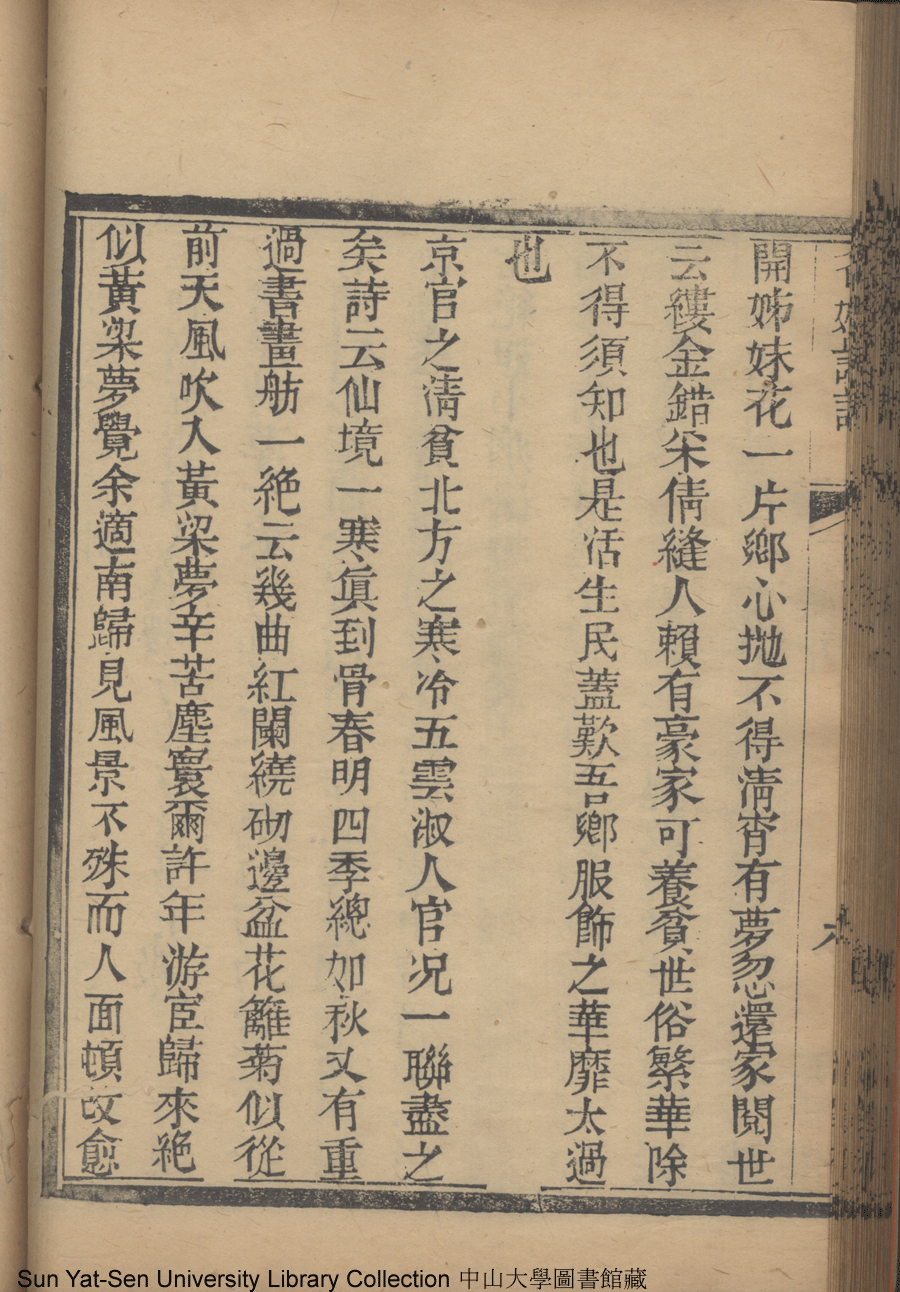 開姊妹花一片鄉心拋不得淸宵有夢忽還家閱世
云縷金錯采倩縫人賴有豪家可養貧世俗繁華除
不得須知也是活生民蓋歎吾鄉服飾之華靡太過
也
京官之淸貧北方之寒冷五雲淑人官况一聯盡之
矣詩云仙境一寒眞到骨春明四季總如秋又有重
過書畫舫一絶云幾曲紅闌繞砌邊盆花籬菊似從
前天風吹入黃粱夢辛苦塵寰爾許年游宦歸來絶
似黃粱夢覺余適南歸見風景不殊而人面頓改愈
Sun Yat-Sen University Library Collection 中山大學圖書館藏